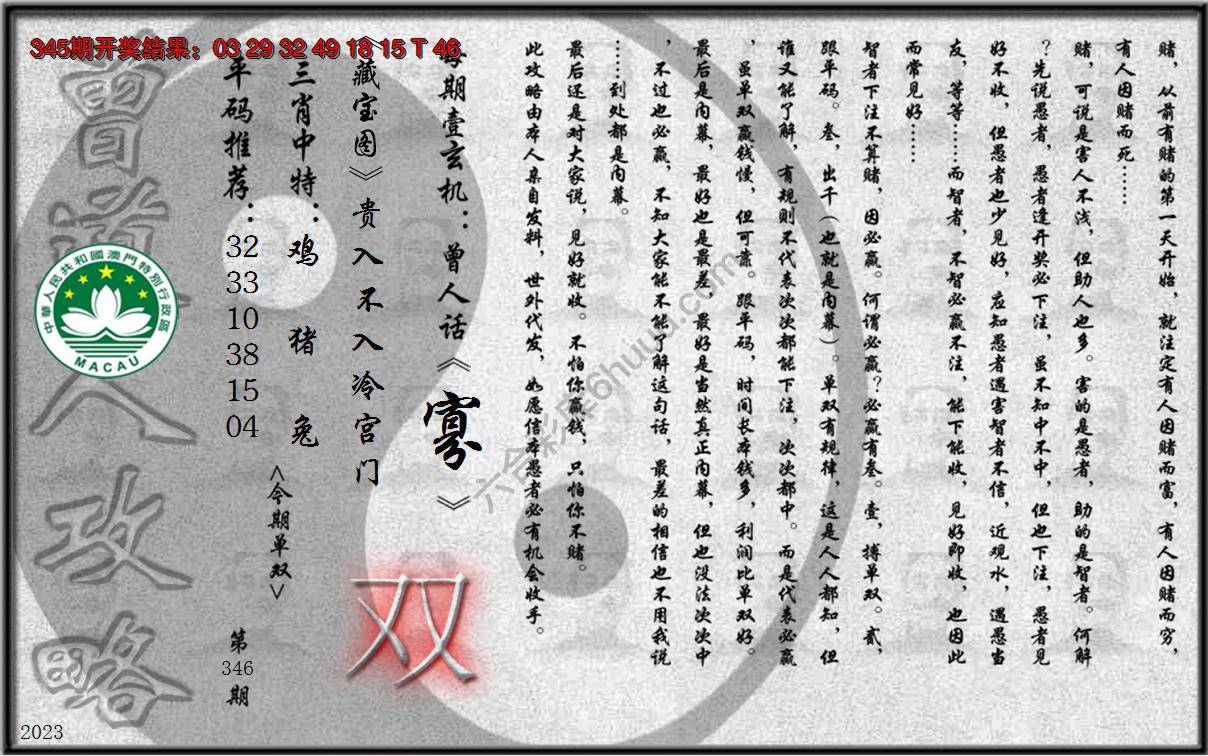 345期开奖结果：03 29 32 49 18 15 T 46
赌，从前有赌的第一天开始，就注定有人因赌而富，有人因赌而穷，
有人因赌而死……
赌，可说是害人不浅，但助人也多。害的是愚者，助的是智者。何解
？先说愚者，愚者逢开奖必下注，虽不知中不中，但也下注，愚者见
好不收，但愚者也少见好，应知愚者遇害智者不信，近观水，遇愚当
友，等等……而智者，不智必赢不注，能下能收，见好即收，也因此
而常见好……
智者下注不算赌，因必赢。何谓必赢？必赢有叁。壹，搏单双。贰，
跟平码。叁，出千（也就是内幕）。单双有规律，这是人人都知，但
谁又能了解，有规则不代表次次都能下注，次次都中。而是代表必赢
，虽单双赢钱慢，但可靠。跟平码，时间长本钱多，利润比单双好。
最后是内幕，最好也是最差，最好是当然真正内幕，但也没法次次中
，不过也必赢，不知大家能不能了解这句话，最差的相信也不用我说
……到处都是内幕。
最后还是对大家说，见好就收。不怕你赢钱，只怕你不赌。
此攻略由本人亲自发料，世外代发，如愿信本愚者必有机会收手。
每期壹玄机：曾人话《寡》
《藏宝图》贵入不入冷宫门
三肖中特：鸡 猪 兔
<今期单双>
双
平码推荐：32 33 10 38 15 04
第346期
曾道人攻略
中華人民共和國澳門特別行政區
MACAU
六合彩库6huuu.com
2023